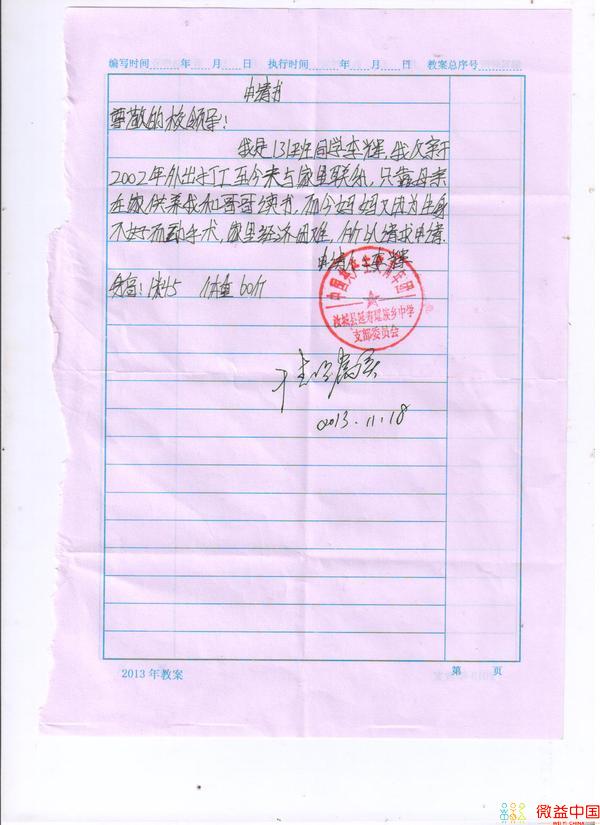 编写时间 年 月 日 执行时间 年 月 日 教案总序号
申请书
尊敬的校领导!
我是131班同学李辉,我父亲于
2002年外出打工至今未与家里联系,只靠母亲
在家供养我和哥哥读书,而今妈妈又因为生身
不好而动手术,家里经济困难,所以请求申请.
申请人:李辉
身高:1米45 体重60斤
中国共产主义青年团
汝城县延寿瑶族乡中学
支部委员会
情况属实
2013.11.18
2013年教案
第 页
微益中国